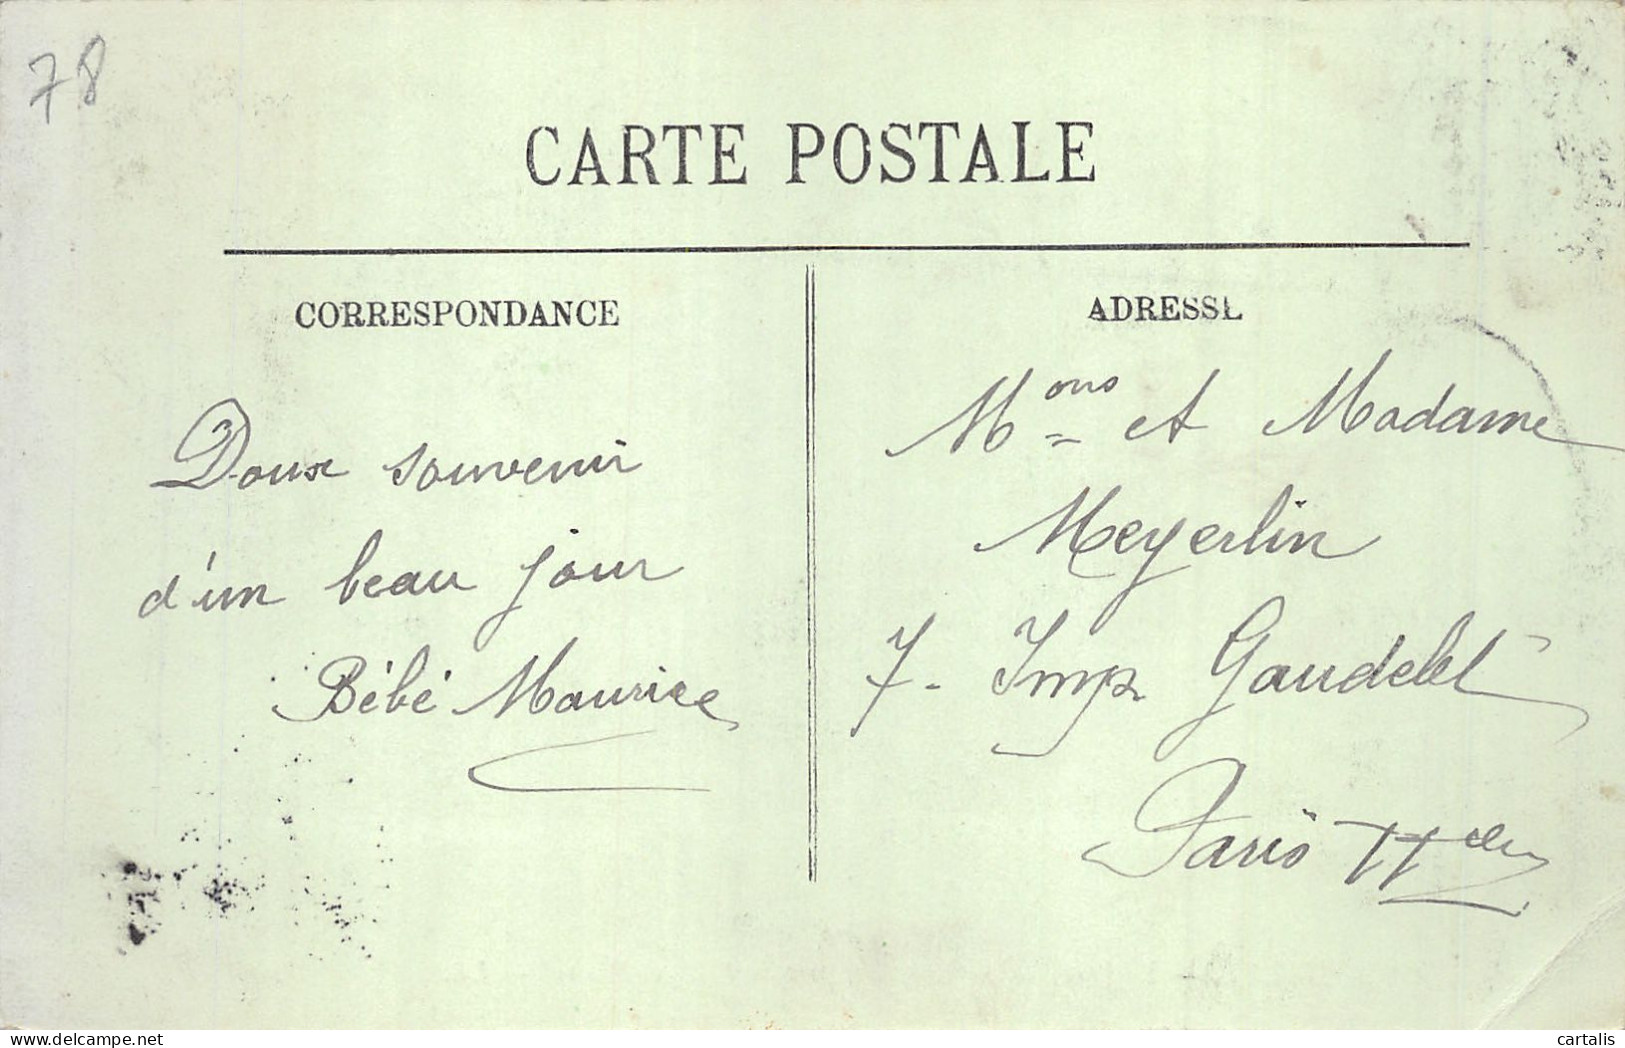 78
CARTE POSTALE
CORRESPONDANCE
ADRESSE
Doux souvenir
d'un beau jour
Bébé Maurice
Mons et Madame
Meyerlin
7. Imp Gaudelet
Paris
delcampe.net
cartalis